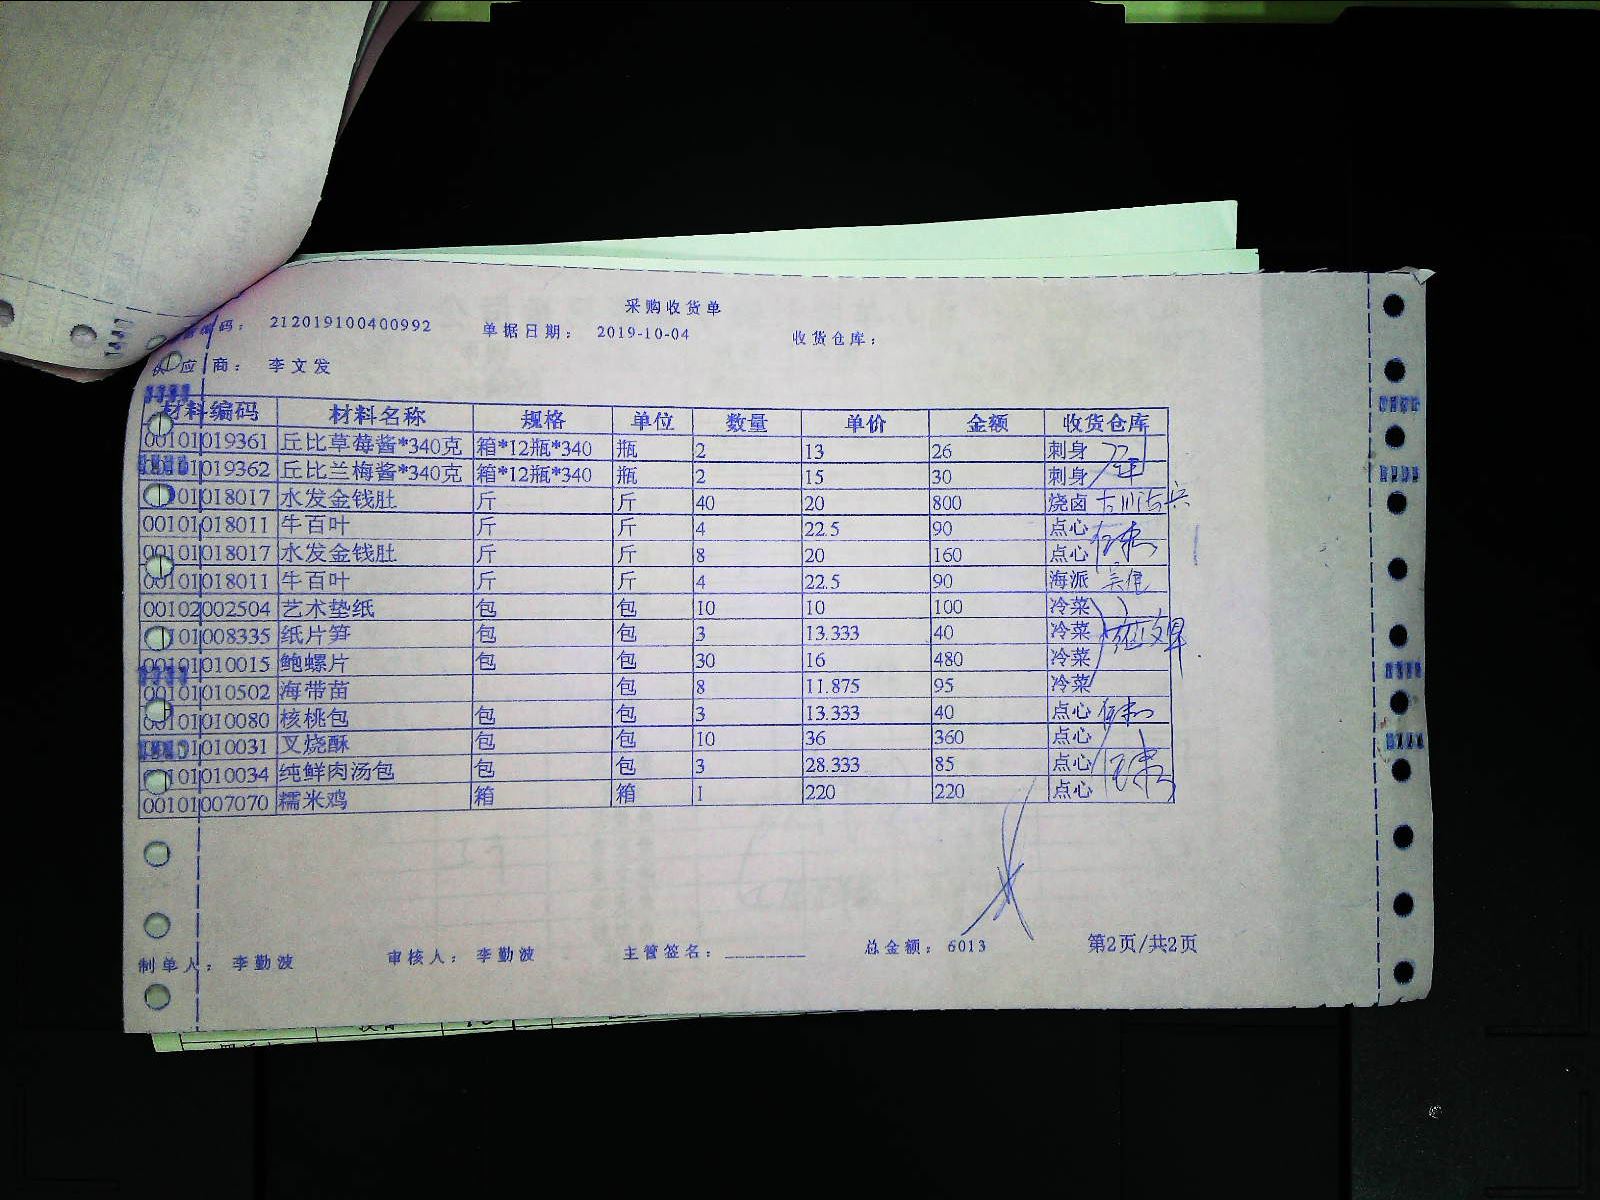 采购收货单
编码: 212019100400992 单据日期: 2019-10-04 收货仓库:
应商: 李文发
材料编码 材料名称 规格 单位 数量 单价 金额 收货仓库
00101019361 丘比草莓酱*340克 箱*12瓶*340 瓶 2 13 26 刺身
1019362 丘比兰梅酱*340克 箱*12瓶*340 瓶 2 15 30 刺身
01018017 水发金钱肚 斤 斤 40 20 800 烧卤
00101018011 牛百叶 斤 斤 4 22.5 90 点心
00101018017 水发金钱肚 斤 斤 8 20 160 点心
00101018011 牛百叶 斤 斤 4 22.5 90 海派
00102002504 艺术垫纸 包 包 10 10 100 冷菜
101008335 纸片笋 包 包 3 13.333 40 冷菜
00101010015 鲍螺片 包 包 30 16 480 冷菜
00101010502 海带苗 包 8 11.875 95 冷菜
00101010080 核桃包 包 包 3 13.333 40 点心
1010031 叉烧酥 包 包 10 36 360 点心
101010034 纯鲜肉汤包 包 包 3 28.333 85 点心
00101007070 糯米鸡 箱 箱 1 220 220 点心
制单人: 李勤波 审核人: 李勤波 主管签名: ________ 总金额: 6013 第2页/共2页